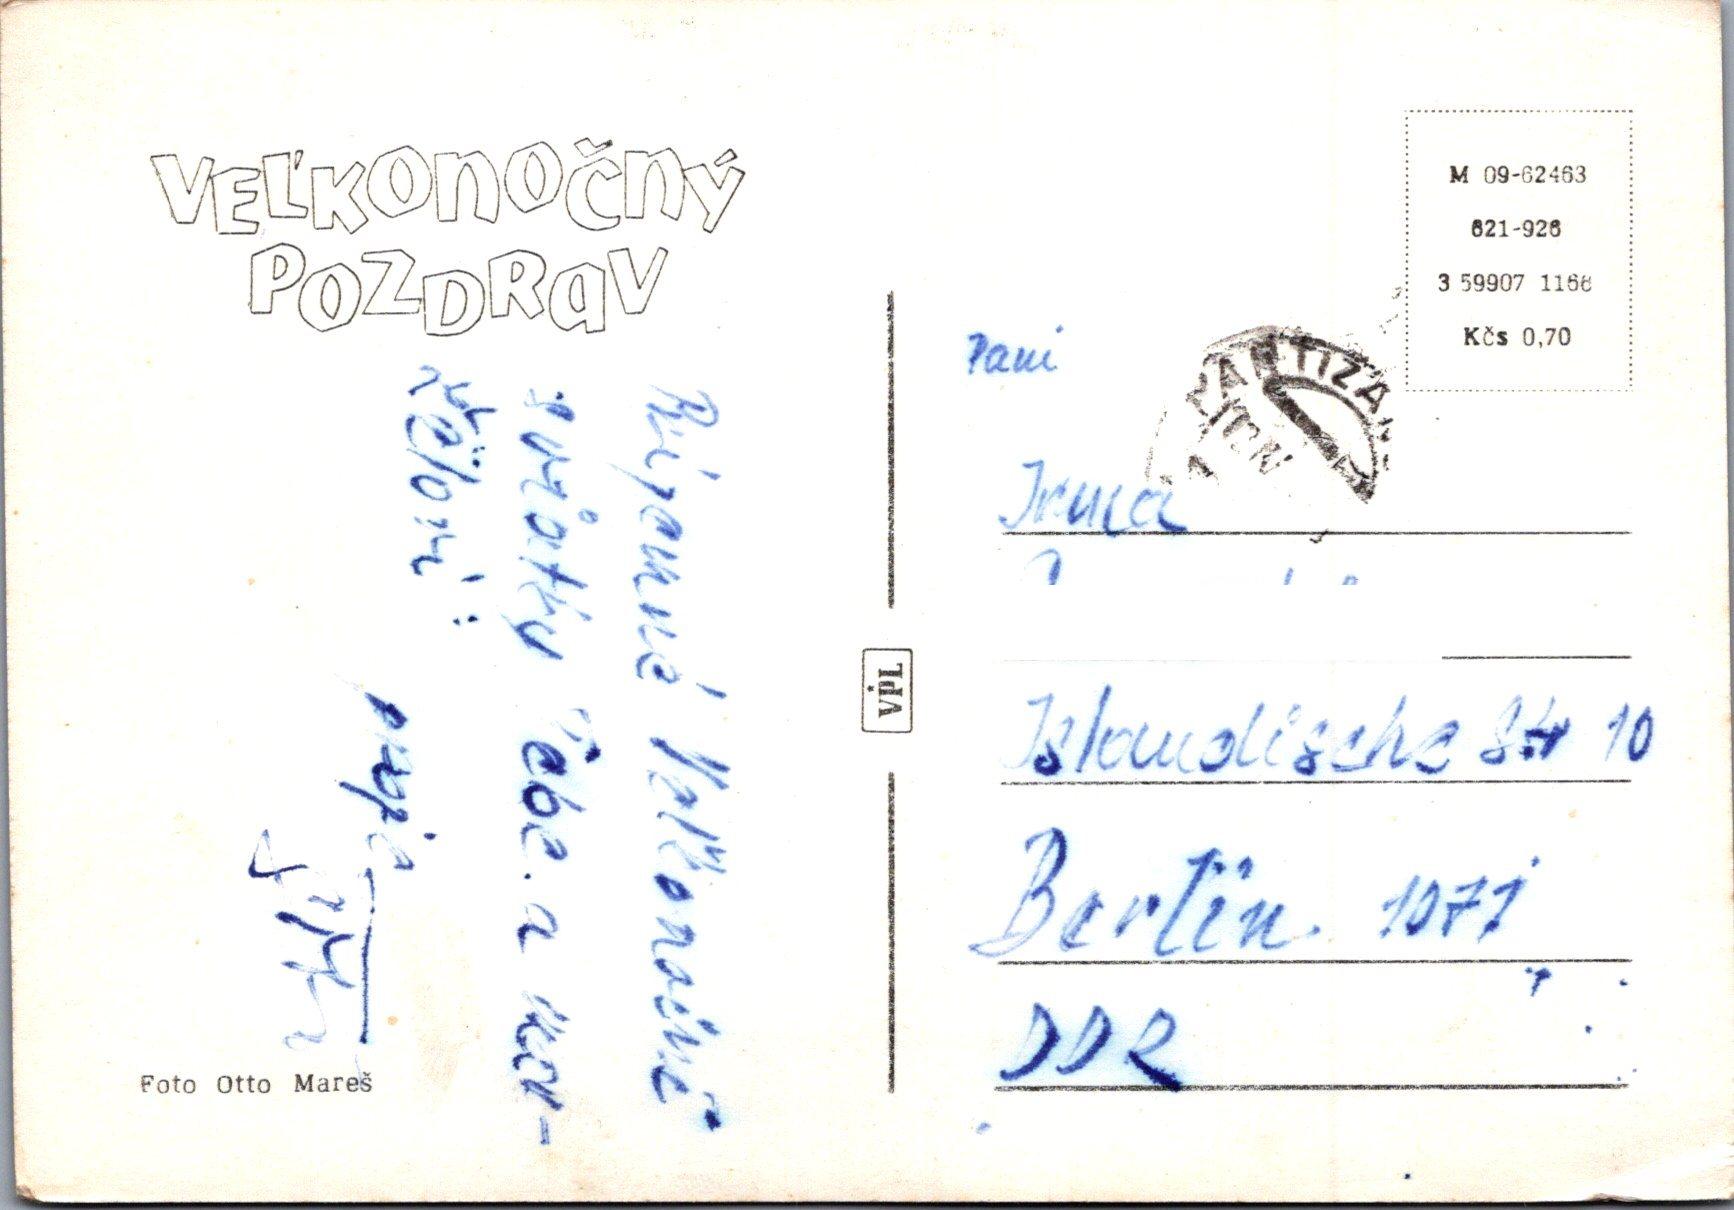 VEĽKONOČNÝ
POZDRAV
Príjemné Veľkonočné
sviatky Tebe a man-
želovi
praje
Foto Otto Mareš
VPL
M 09-62463
621-926
3 59907 1168
Kčs 0,70
PARTIZÁN
Pani
Irma
Islandische Str 10
Berlin 1071
DDR